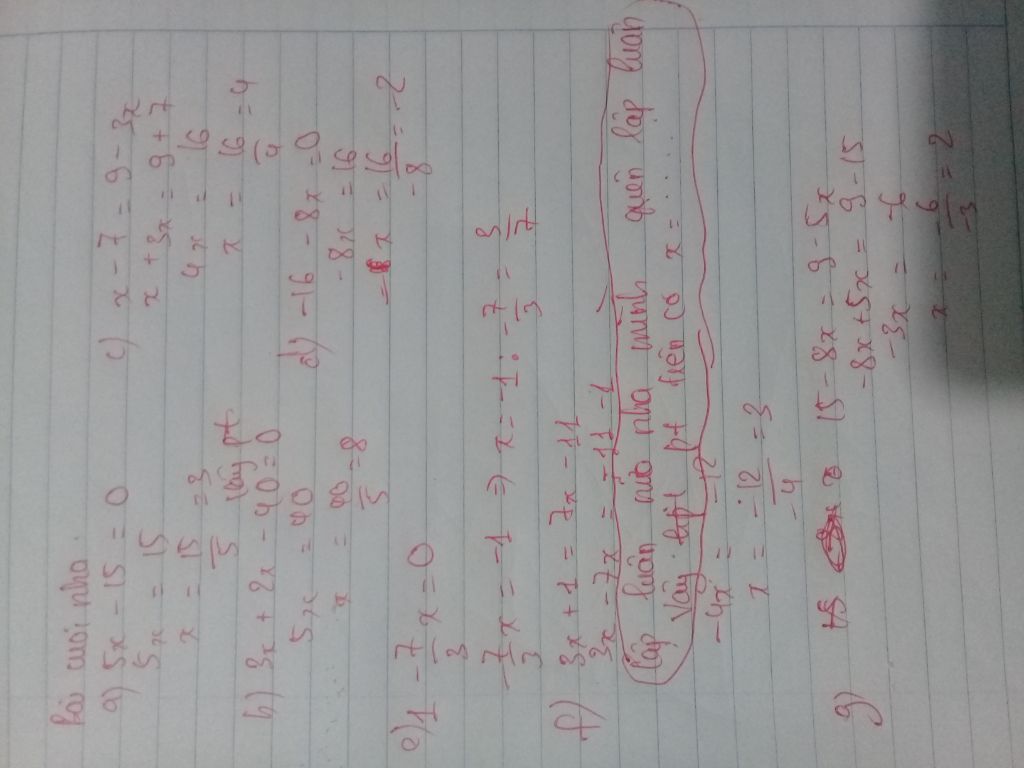 Bài cuối nha.
a) 5x - 15 = 0
5x = 15
x = 15/5 = 3
Vậy pt
b) 3x + 2x - 40 = 0
5x = 40
x = 40/5 = 8
c) x - 7 = 9 - 3x
x + 3x = 9 + 7
4x = 16
x = 16/4 = 4
d) -16 - 8x = 0
-8x = 16
x = 16/-8 = -2
e) 1 - 7/3 x = 0
-7/3 x = -1 => x = -1 : -7/3 = 3/7
f) 3x + 1 = 7x - 11
3x - 7x = -11 - 1
(Lập luận nữa nha mình quên lập luận
Vậy pt trên có x = .....
-4x = -12
x = -12/-4 = 3
g) 15 - 8x = 9 - 5x
-8x + 5x = 9 - 15
-3x = -6
x = -6/-3 = 2